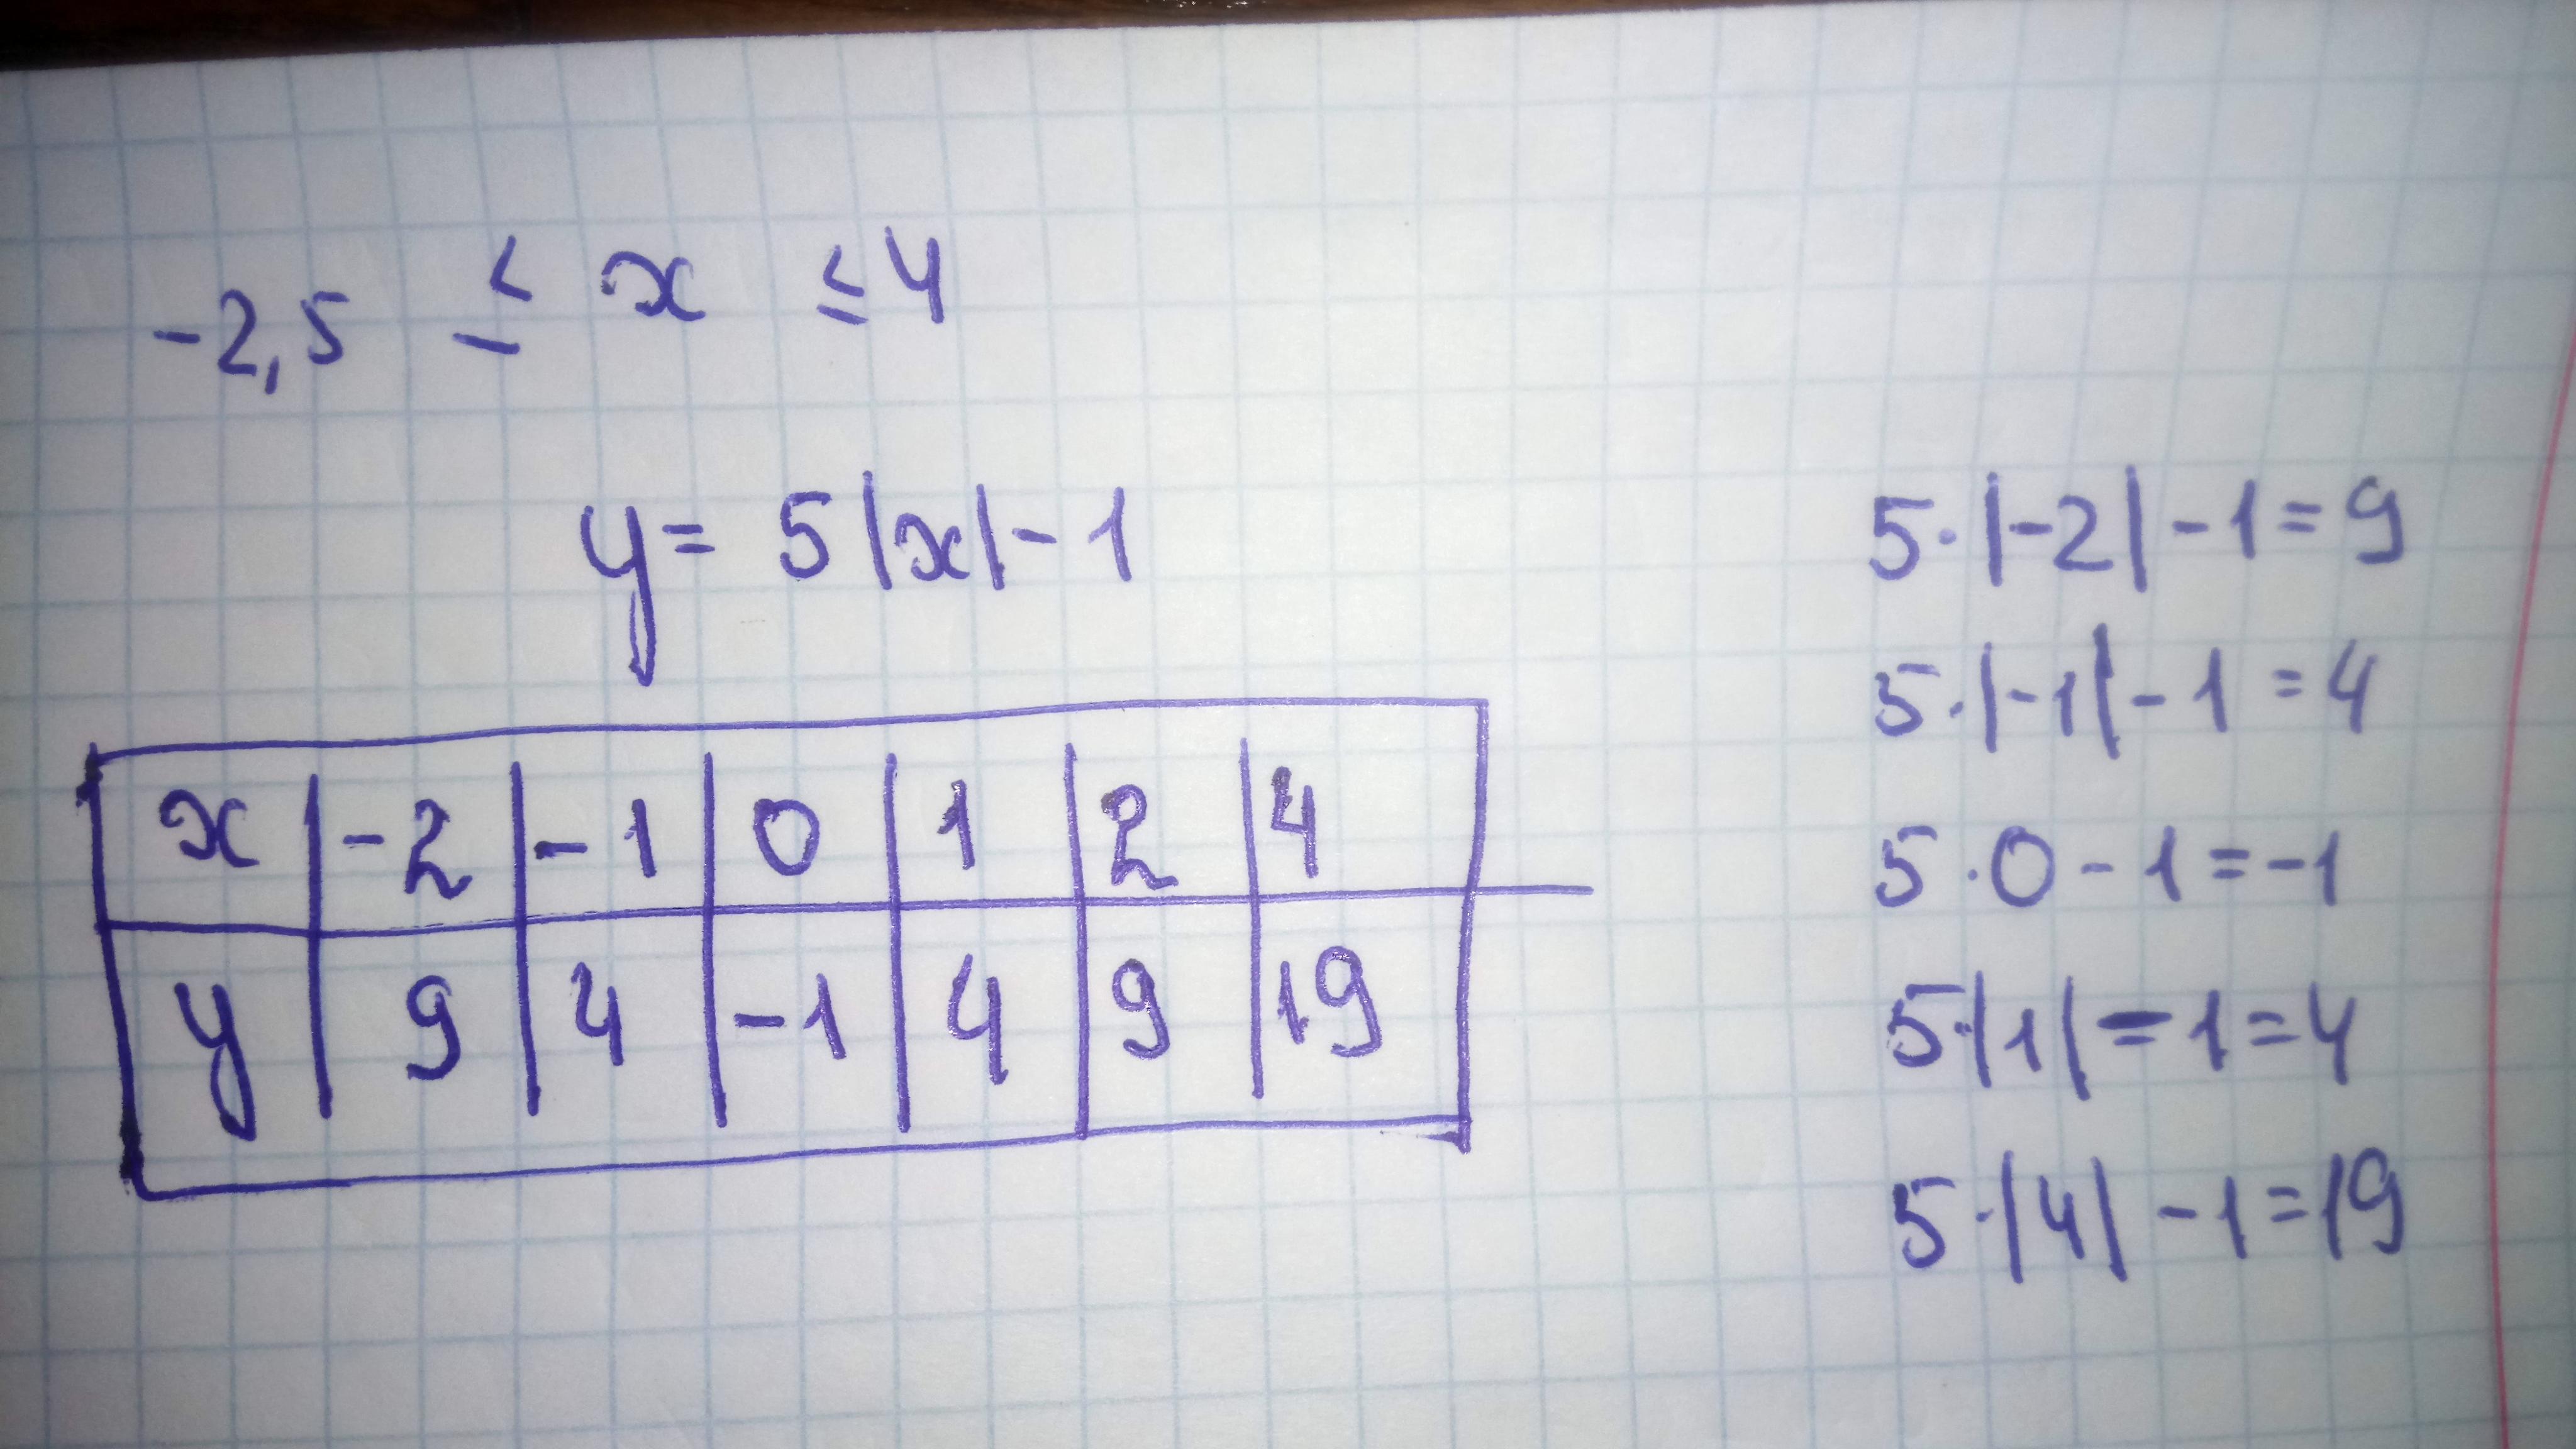 -2,5 ≤ x ≤ 4
y = 5|x| - 1
x -2 -1 0 1 2 4
y 9 4 -1 4 9 19
5·|-2| - 1 = 9
5·|-1| - 1 = 4
5·0 - 1 = -1
5·|1| - 1 = 4
5·|4| - 1 = 19